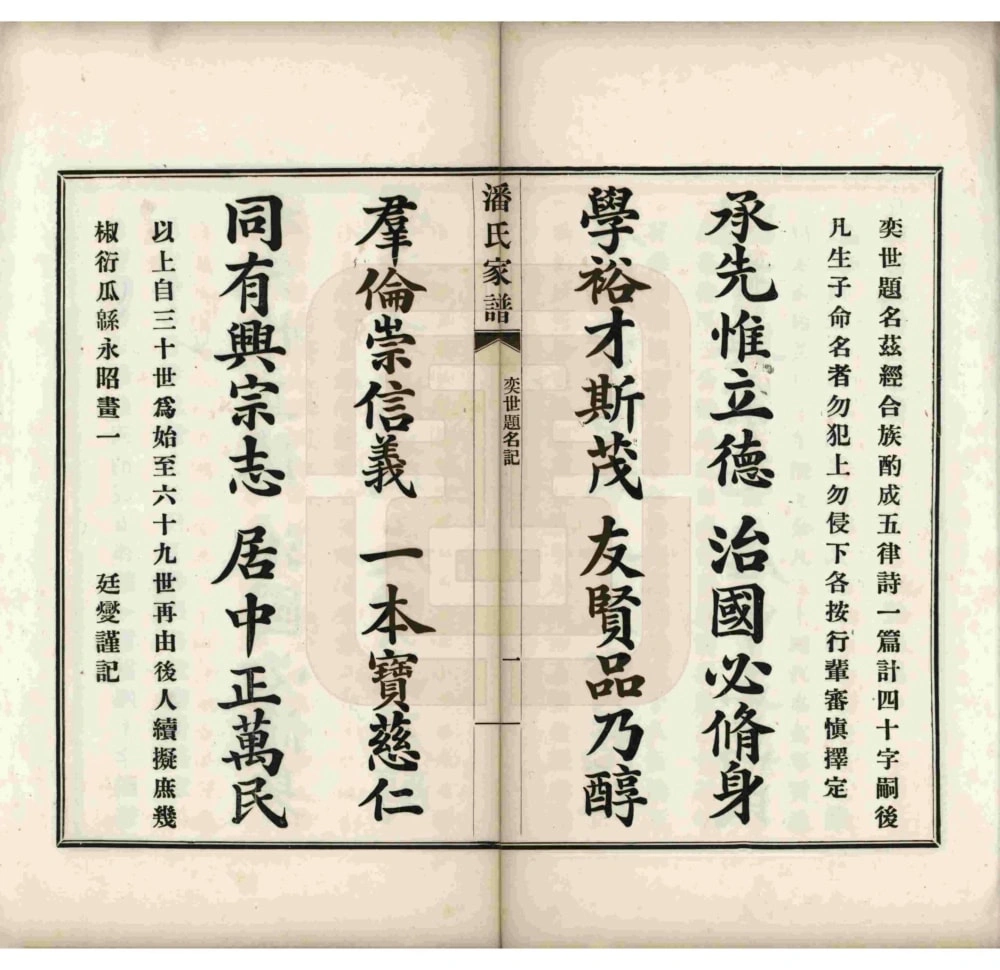 奕世題名茲經合族酌成五律詩一篇計四十字嗣後
凡生子命名者勿犯上勿侵下各按行輩審慎擇定
承先惟立德 治國必脩身
學裕才斯茂 友賢品乃醇
潘氏家譜 奕世題名記 一
羣倫崇信義 一本寶慈仁
同有興宗志 居中正萬民
以上自三十世爲始至六十九世再由後人續擬庶幾
椒衍瓜緜永昭畫一 廷燮謹記